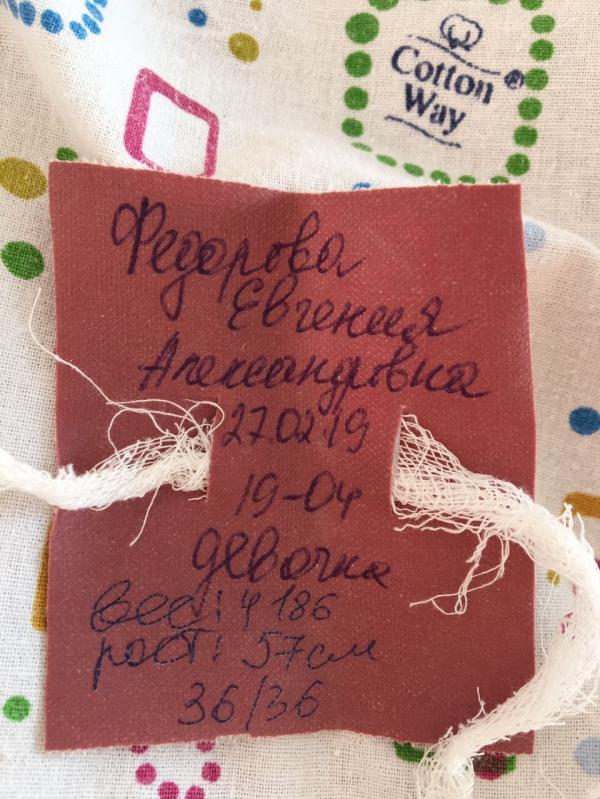 Cotton
Way
®
Федорова
Евгения
Александровна
27.02.19
19-04
девочка
вес: 4186
рост: 57см
36/36